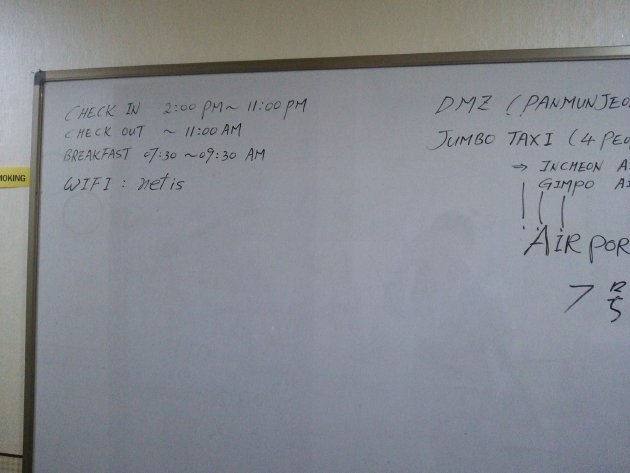 CHECK IN 2:00 PM ~ 11:00 PM
CHECK OUT ~ 11:00 AM
BREAKFAST 07:30 ~ 09:30 AM
WIFI : netis
DMZ (PANMUNJEO
JUMBO TAXI (4 PEO
→ INCHEON A
GIMPO AI
AIRPOR
7
MOKING